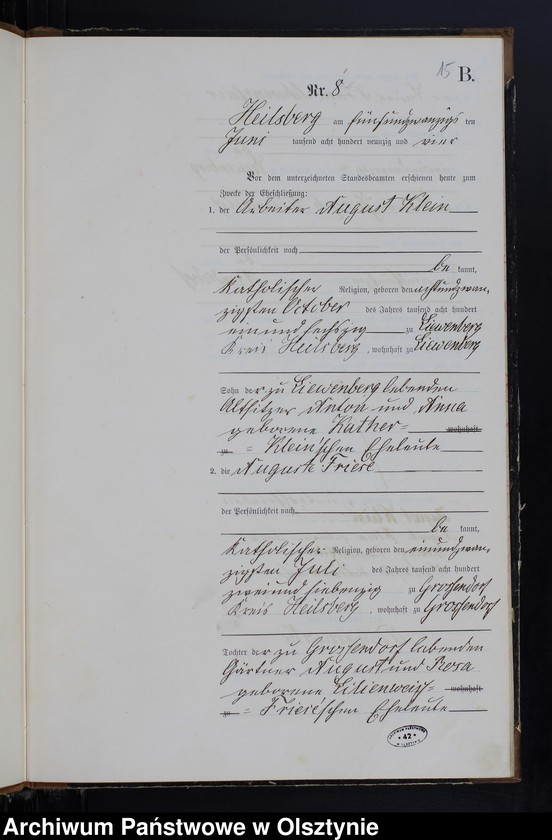 15 B.
Nr. 8
Heilsberg am fünfundzwanzigsten
Juni tausend acht hundert neunzig und vier
Vor dem unterzeichneten Standesbeamten erschienen heute zum
Zwecke der Eheschließung:
1. der Arbeiter August Klein
der Persönlichkeit nach
be kannt,
Katholischer Religion, geboren den achtundzwan-
zigsten October des Jahres tausend acht hundert
einundsechszig zu Liewenberg
Kreis Heilsberg, wohnhaft zu Liewenberg
Sohn der zu Liewenberg lebenden
Altsitzer Anton und Anna
geborene Kather- wohnhaft
zu = Klein'schen Eheleute
2. die Auguste Friese
der Persönlichkeit nach
be kannt,
Katholischer Religion, geboren den einundzwan-
zigsten Juli des Jahres tausend acht hundert
zweiund siebenzig zu Grossendorf
Kreis Heilsberg, wohnhaft zu Grossendorf
Tochter der zu Grossendorf lebenden
Gärtner August und Rosa
geborene Lilienweiss= wohnhaft
zu = Friese'schen Eheleute
42
Archiwum Państwowe w Olsztynie